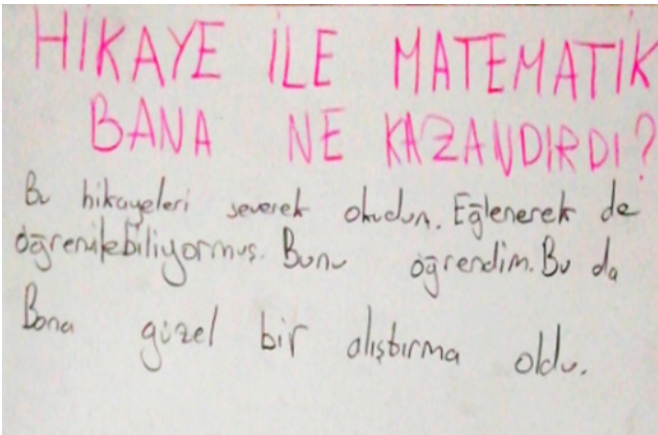 HİKAYE İLE MATEMATİK
BANA NE KAZANDIRDI?
Bu hikayeleri severek okudum. Eğlenerek de
öğrenilebiliyormuş. Bunu öğrendim. Bu da
Bana güzel bir alıştırma oldu.